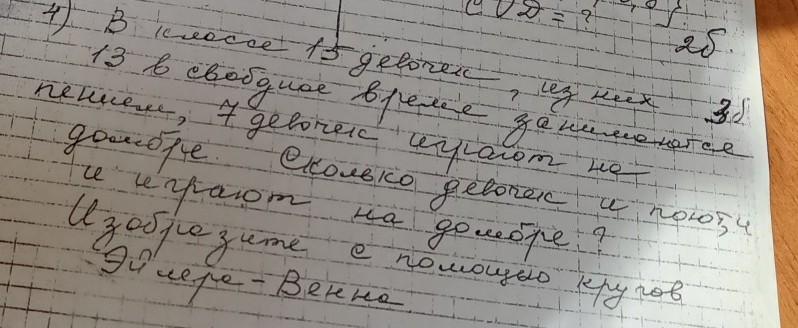 С U D = ?
2б.
4) В классе 15 девочек, из них
3б
13 в свободное время занимаются
пением, 7 девочек играют на
домбре. Сколько девочек и поют, и
и играют на домбре?
Изобразите с помощью кругов
Эйлера-Венна